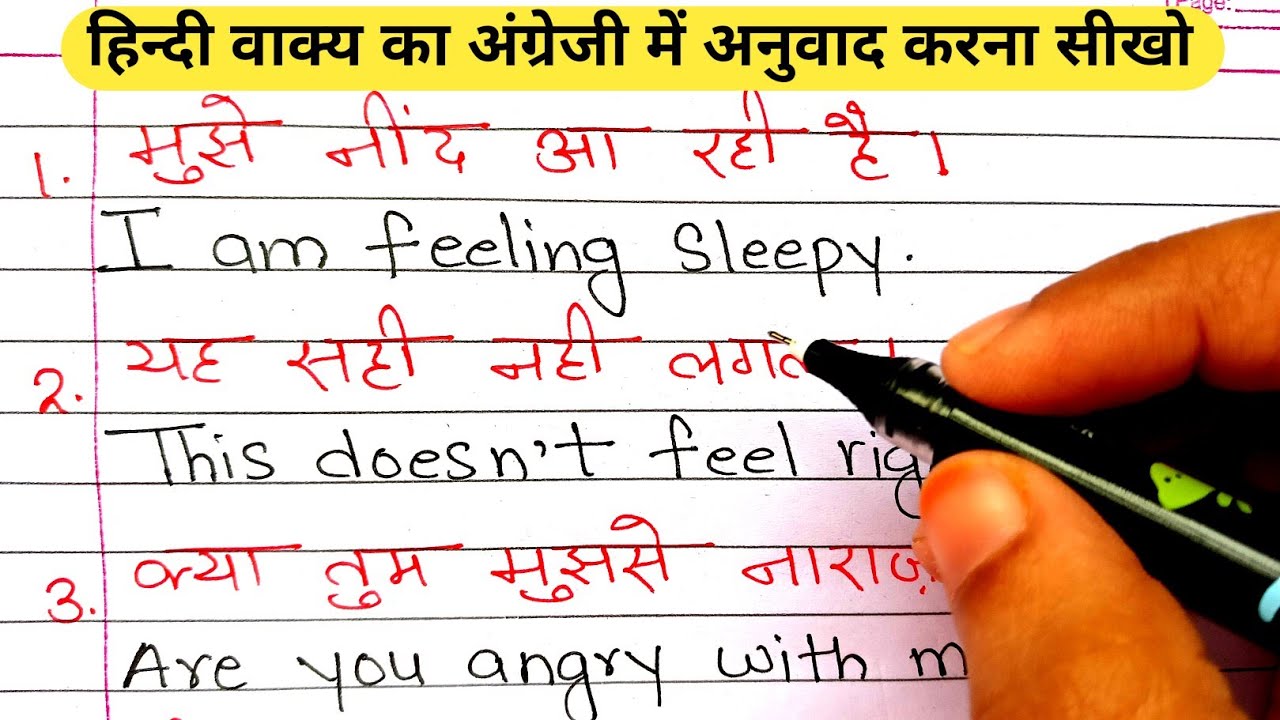 Page:
हिन्दी वाक्य का अंग्रेजी में अनुवाद करना सीखो
1. मुझे नींद आ रही है।
I am feeling sleepy.
2. यह सही नही
This doesn't feel
3. क्या तुम मुझसे नाराज़
Are you angry with